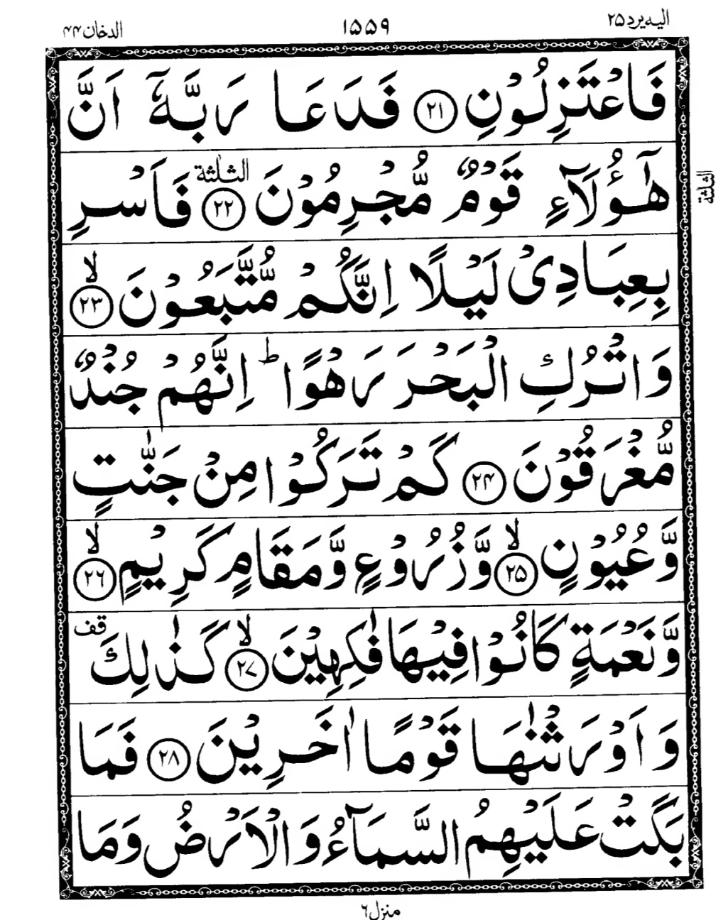 الیہ یرد ۲۵
۱۵۵۹
الدخان ۴۴
فَاعْتَزِلُوْنِ ۲۱ فَدَعَا رَبَّهٗۤ اَنَّ
هٰۤؤُلَآءِ قَوْمٌ مُّجْرِمُوْنَ الثلٰثة ۲۲ فَاَسْرِ
الثلثة
بِعِبَادِیْ لَیْلًا اِنَّكُمْ مُّتَّبَعُوْنَ لا ۲۳
وَاتْرُكِ الْبَحْرَ رَهْوًا ؕ اِنَّهُمْ جُنْدٌ
مُّغْرَقُوْنَ ۲۴ كَمْ تَرَكُوْا مِنْ جَنّٰتٍ
وَّعُیُوْنٍ لا ۲۵ وَّزُرُوْعٍ وَّمَقَامٍ كَرِیْمٍ لا ۲۶
وَّنَعْمَةٍ كَانُوْا فِیْهَا فٰكِهِیْنَ لا ۲۷ كَذٰلِكَ قف
وَاَوْرَثْنٰهَا قَوْمًا اٰخَرِیْنَ ۲۸ فَمَا
بَكَتْ عَلَیْهِمُ السَّمَآءُ وَالْاَرْضُ وَمَا
منزل ۶